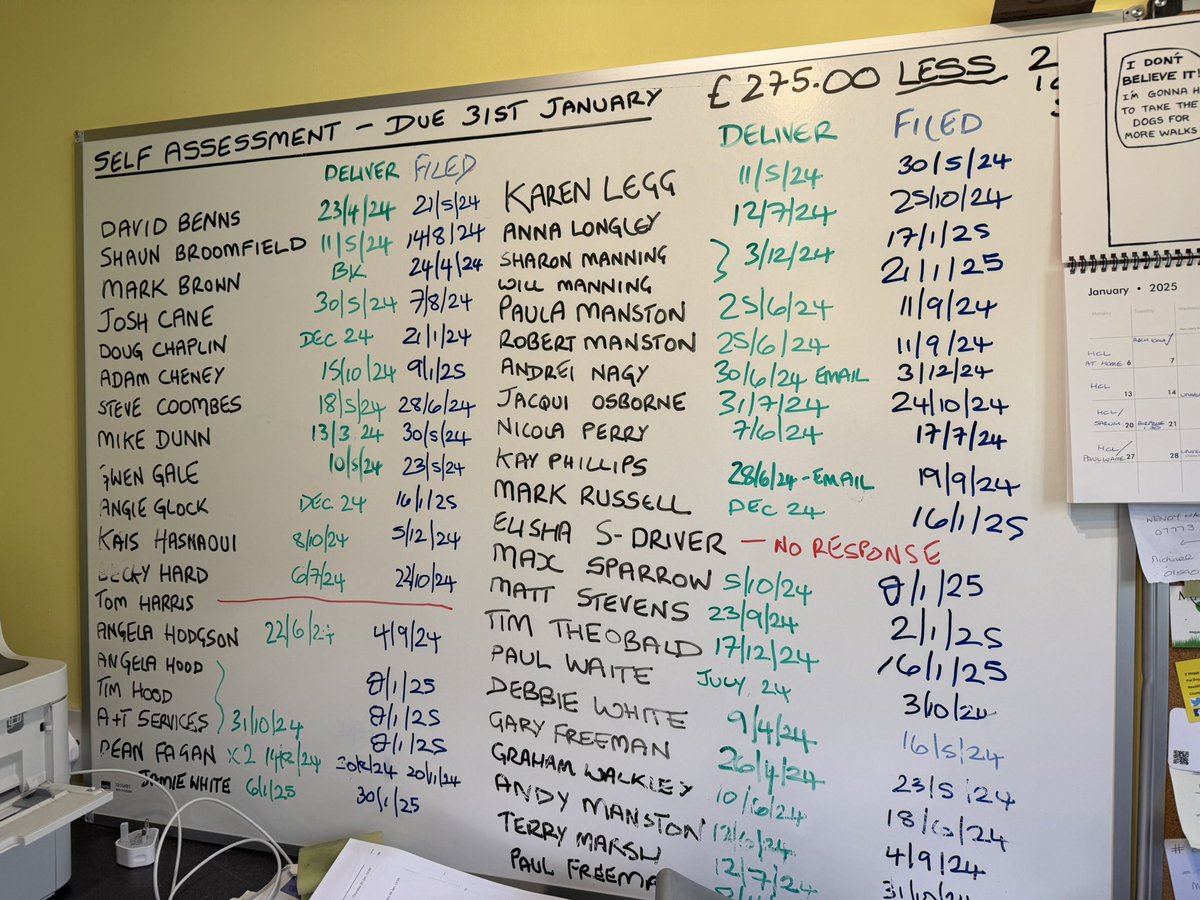 SELF ASSESSMENT - DUE 31ST JANUARY £275.00 LESS
DELIVER FILED
DAVID BENNS 23/4/24 21/5/24
SHAUN BROOMFIELD 11/5/24 14/8/24
MARK BROWN BK 24/4/24
JOSH CANE 30/5/24 7/8/24
DOUG CHAPLIN DEC 24 21/1/24
ADAM CHENEY 15/10/24 9/1/25
STEVE COOMBES 18/5/24 28/6/24
MIKE DUNN 13/3 24 30/5/24
GWEN GALE 10/5/24 23/5/24
ANGIE GLOCK DEC 24 16/1/25
KAIS HASNAOUI 8/10/24 5/12/24
BECKY HARD 6/7/24 22/10/24
TOM HARRIS
ANGELA HODGSON 22/6/24 4/9/24
ANGELA HOOD
TIM HOOD 8/1/25
A+T SERVICES 31/10/24 8/1/25
8/1/25
DEAN FAGAN X2 20/1/24
JAMIE WHITE 6/1/25 30/1/25
DELIVER FILED
KAREN LEGG 11/5/24 30/5/24
ANNA LONGLEY 12/7/24 25/10/24
SHARON MANNING 3/12/24 17/1/25
WILL MANNING 21/1/25
PAULA MANSTON 25/6/24 11/9/24
ROBERT MANSTON 25/6/24 11/9/24
ANDREI NAGY 30/6/24 EMAIL 3/12/24
JACQUI OSBORNE 31/7/24 24/10/24
NICOLA PERRY 7/6/24 17/7/24
KAY PHILLIPS 28/6/24 - EMAIL 19/9/24
MARK RUSSELL DEC 24 16/1/25
ELISHA S-DRIVER - NO RESPONSE
MAX SPARROW 5/10/24 8/1/25
MATT STEVENS 23/9/24 2/1/25
TIM THEOBALD 17/12/24 16/1/25
PAUL WAITE JULY 24 3/10/24
DEBBIE WHITE 9/4/24 16/5/24
GARY FREEMAN 26/4/24 23/5/24
GRAHAM WALKLEY 10/6/24 18/6/24
ANDY MANSTON 12/6/24 4/9/24
TERRY MARSH 12/7/24 31/10/24
PAUL FREEMA
I DON'T
BELIEVE IT!
I'M GONNA H
TO TAKE THE
DOGS FOR
MORE WALKS
January • 2025
Monday Tuesday
HCL
AT HOME 6 7
HCL 13 14
HCL/
SARUM 20 21
HCL/
PAUL WAITE 27 28
WENDY HA
07773